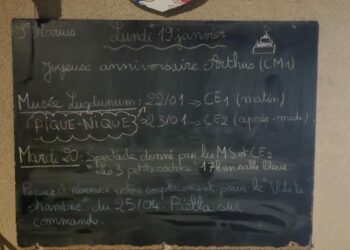 St Marius Lundi 19 janvier
Joyeux anniversaire Arthus (CM1)
Musée Lugdunum: 22/01 → CE1 (matin)
PIQUE-NIQUE 23/01 → CE2 (après-midi)
Mardi 20: Spectacle donné par les MS et CE2
"Les 3 petits cochons" 17h en salle bleue
Pensez à réserver votre emplacement pour le "Vide ta
chambre" du 25/04. Billa sur
commande.